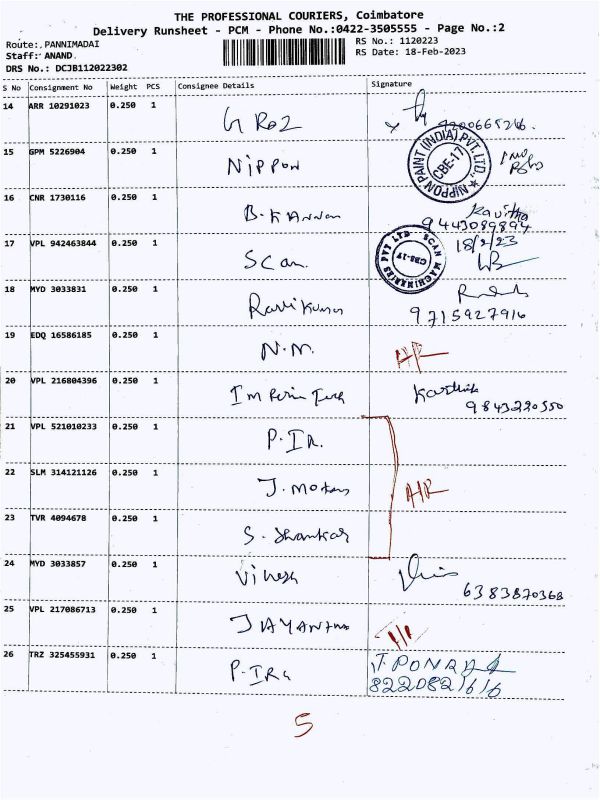 THE PROFESSIONAL COURIERS, Coimbatore
Delivery Runsheet - PCM - Phone No.:0422-3505555 - Page No.:2
Route:. PANNIMADAI
RS No.: 1120223
Staff: ANAND.
RS Date: 18-Feb-2023
DRS No.: DCJB112022302
S No Consignment No Weight PCS Consignee Details Signature
14 ARR 10291023 0.250 1 G Roz
15 GPM 5226904 0.250 1 Nippon
NIPPON PAINT (INDIA) PVT. LTD., CBE-17
16 CNR 1730116 0.250 1 B. Kannan Kavitha
9443089894
17 VPL 942463844 0.250 1 Scan 18/2/23
SCAN MACHINERIES PVT LTD CBE-17
18 MYD 3033831 0.250 1 Ravikumar
9715927916
19 EDQ 16586185 0.250 1 N.M.
20 VPL 216804396 0.250 1 Karthik
9843220550
21 VPL 521010233 0.250 1
22 SLM 314121126 0.250 1 J. Mohan
23 TVR 4094678 0.250 1 S. Shankar
24 MYD 3033857 0.250 1 Vignesh
6383870368
25 VPL 217086713 0.250 1
26 TRZ 325455931 0.250 1
5